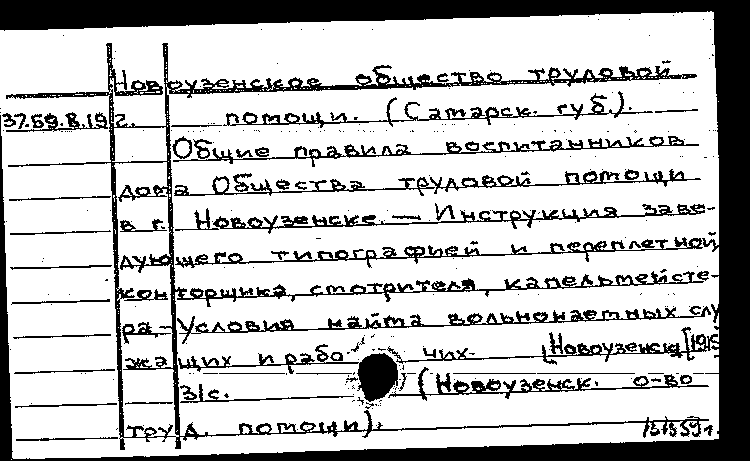 Новоузенское общество трудовой
37.59.8.19 г. помощи. (Самарск. губ.).
Общие правила воспитанников
дома Общества трудовой помощи
в г. Новоузенске. — Инструкция заве-
дующего типографией и переплетной
конторщика, смотрителя, капельмейсте-
ра, - Условия найма вольнонаемных слу
жащих и рабо- чих. [Новоузенск] [1915
31с. (Новоузенск. о-во
труд. помощи).